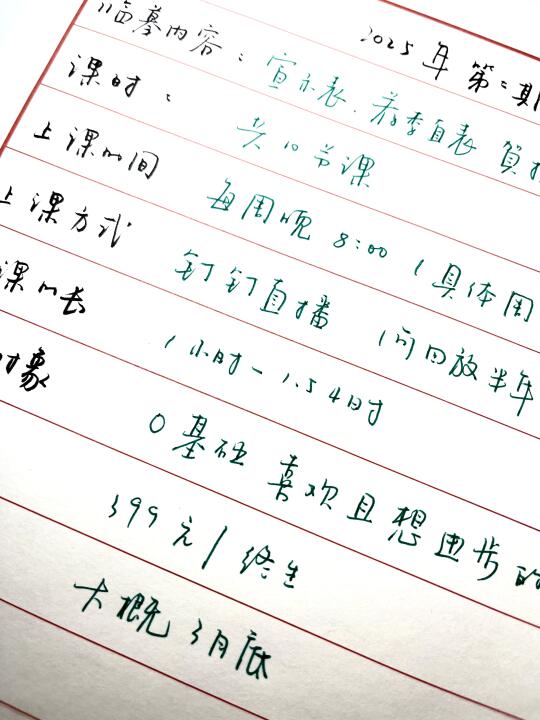 2025年 第二期
临摹内容：宣示表、荐季直表
课时：共10节课
上课时间 每周晚 8:00（具体周
上课方式 钉钉直播（可回放半年
课时长 1小时-1.5小时
对象 0基础 喜欢且想进步的
399元/终生
大概3月底